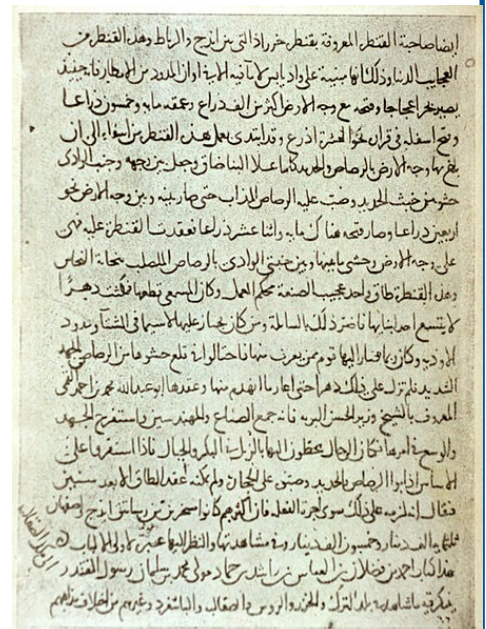 ايضا صاحبة القنطرة المعروفة بقنطرة خرزاذ التي بين ايذج والرباط وهذه القنطرة من
عجايب الدنيا وذلك انها مبنية على واد يابس لا ماء فيه الا في اوان المدود من الامطار فانه حينئذ
يصير بحرا عجاجا وفتحه مع وجه الارض اكثر من الف ذراع وعمقه مايه وخمسون ذراعا
وفتح اسفله في قراره نحو العشرة اذرع وقد ابتدى بعمل هذه القنطرة من اسفلها الى ان
بلغ بها وجه الارض بالرصاص والحديد كلما علا البنا ضاق وجعل بين وجهه وجنب الوادي
حشو من خبث الحديد وصب عليه الرصاص المذاب حتى صار بينه وبين وجه الارض نحو
اربعين ذراعا وصار فتحه هناك مايه واثنا عشر ذراعا فعقدت القنطرة عليه فهي
على وجه الارض وحشى ما بينها وبين جنبتي الوادي بالرصاص المصلب بنحاتة النحاس
وهذه القنطرة طاق واحد عجيب الصنعة محكم العمل وكان المسمعي قطعها فمكثت دهرا
لا يتسع احد لبنايها فاضر ذلك بالسابلة ومن كان يجتاز عليها لا سيما في الشتا ومدود
الاودية وكان ربما صار اليها قوم ممن يقرب منها فاحتالوا في قلع حشوها من الرصاص بالجهد
الشديد فلم تزل على ذلك دهرا حتى اعاد ما انهدم منها وعقدها ابو عبد الله محمد بن احمد القمي
المعروف بالشيخ وزير الحسن البويه فانه جمع الصناع والمهندسين واستفرغ الجهد
والوسع في امرها فكان الرجال يحطون اليها بالزبل في البكر والحبال فاذا استقروا على
الاساس اذابوا الرصاص والحديد وصبوه على الحجارة ولم يمكنه عقد الطاق الا بعد سنين
فيقال انه لزمه على ذلك سوى اجرة الفعلة فان اكثرهم كانوا مسخرين من رساتيق ايذج واصفهان
ثلثمايه الف دينار وخمسون الف دينار وفي مشاهدتها والنظر اليها عبرة لاولي الالباب
هذا كتاب احمد بن فضلان بن العباس بن راشد بن حماد مولى محمد بن سليمان رسول المقتدر
الى ملك الصقالبة
يذكر فيه ما شاهد في بلد الترك والخزر والروس والصقالبة والباشغرد وغيرهم من اختلاف مذاهبهم